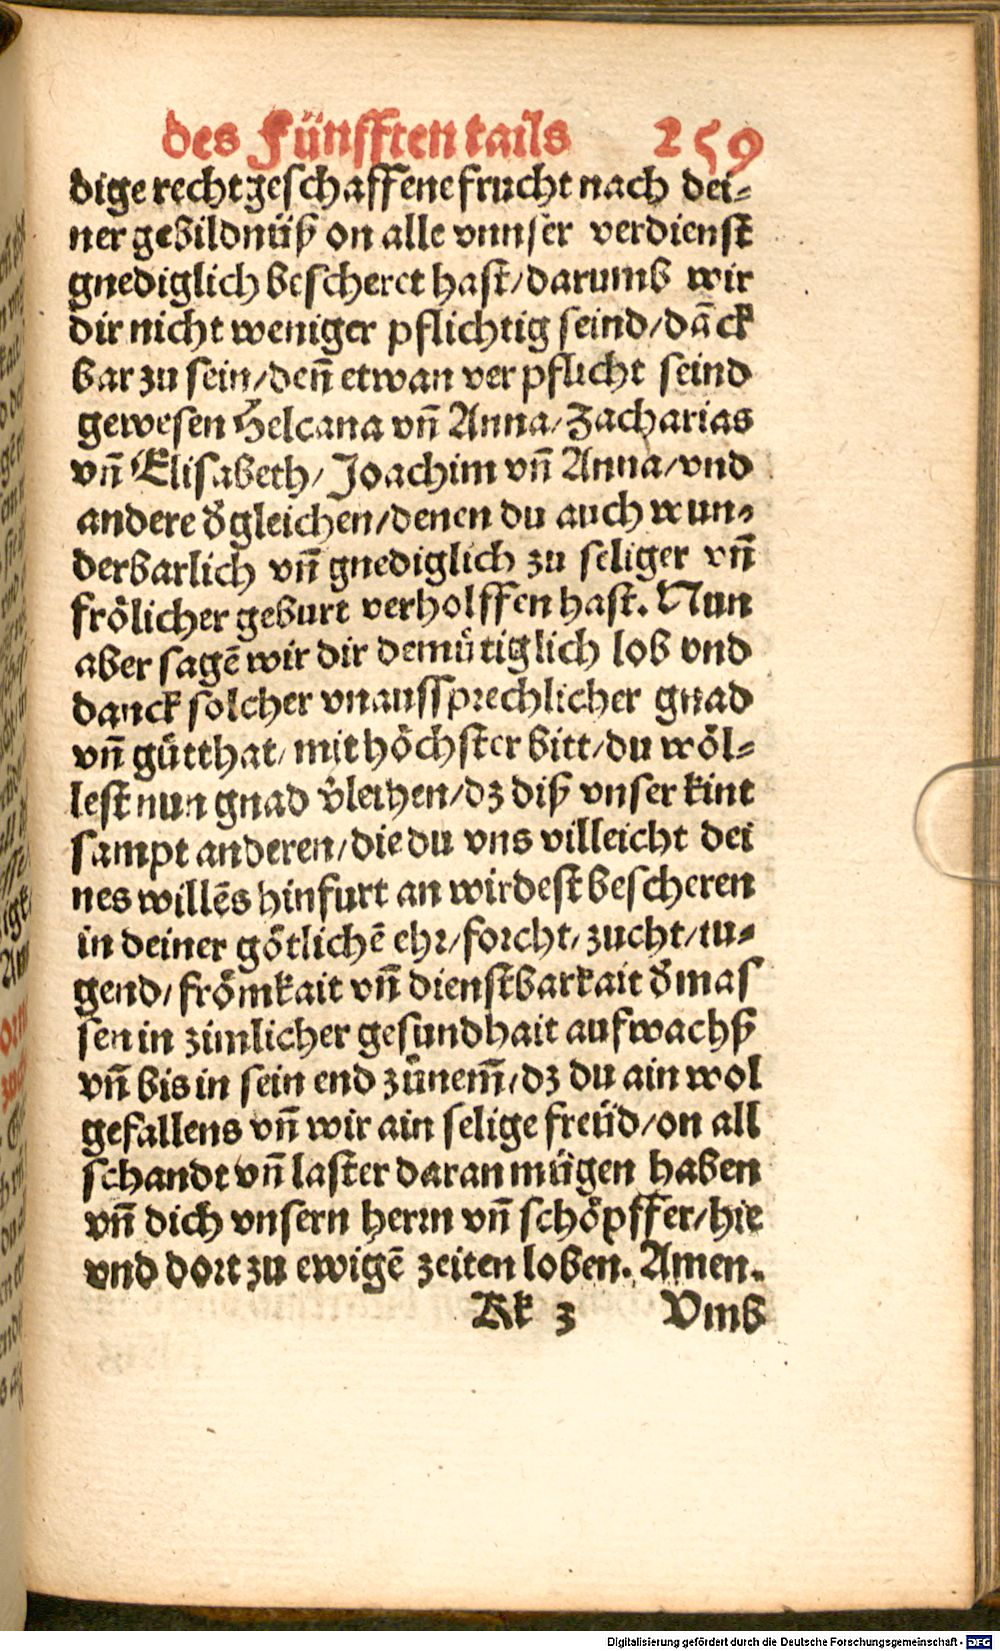 des Fünfften tails 259
dige rechtgeschaffene frucht nach dei-
ner gebildnüß on alle vnnser verdienst
gnediglich bescheret hast/darumb wir
dir nicht weniger pflichtig seind/dāck
bar zu sein/deñ etwan verpflicht seind
gewesen Helcana vñ Anna/Zacharias
vñ Elisabeth/Joachim vñ Anna/vnd
andere d̕gleichen/denen du auch wun-
derbarlich vñ gnediglich zu seliger vñ
frölicher geburt verholffen hast. Nun
aber sagē wir dir demütiglich lob vnd
danck solcher vnaussprechlicher gnad
vñ gůtthat/mit höchster bitt/du wöl-
lest nun gnad v̕leihen/dz diß vnser kint
sampt anderen/die du vns villeicht dei
nes willēs hinfurt an wirdest bescheren
in deiner götlichē ehr/forcht/zucht/tu-
gend/frömkait vñ dienstbarkait d̕mas
sen in zimlicher gesundhait aufwachß
vñ bis in sein end zůnem̄/dz du ain wol
gefallens vñ wir ain selige freüd/on all
schandt vñ laster daran mügen haben
vñ dich vnsern herrn vñ schöpffer/hie
vnd dort zu ewigē zeiten loben. Amen.
Kk 3 Vmb
Digitalisierung gefördert durch die Deutsche Forschungsgemeinschaft - DFG